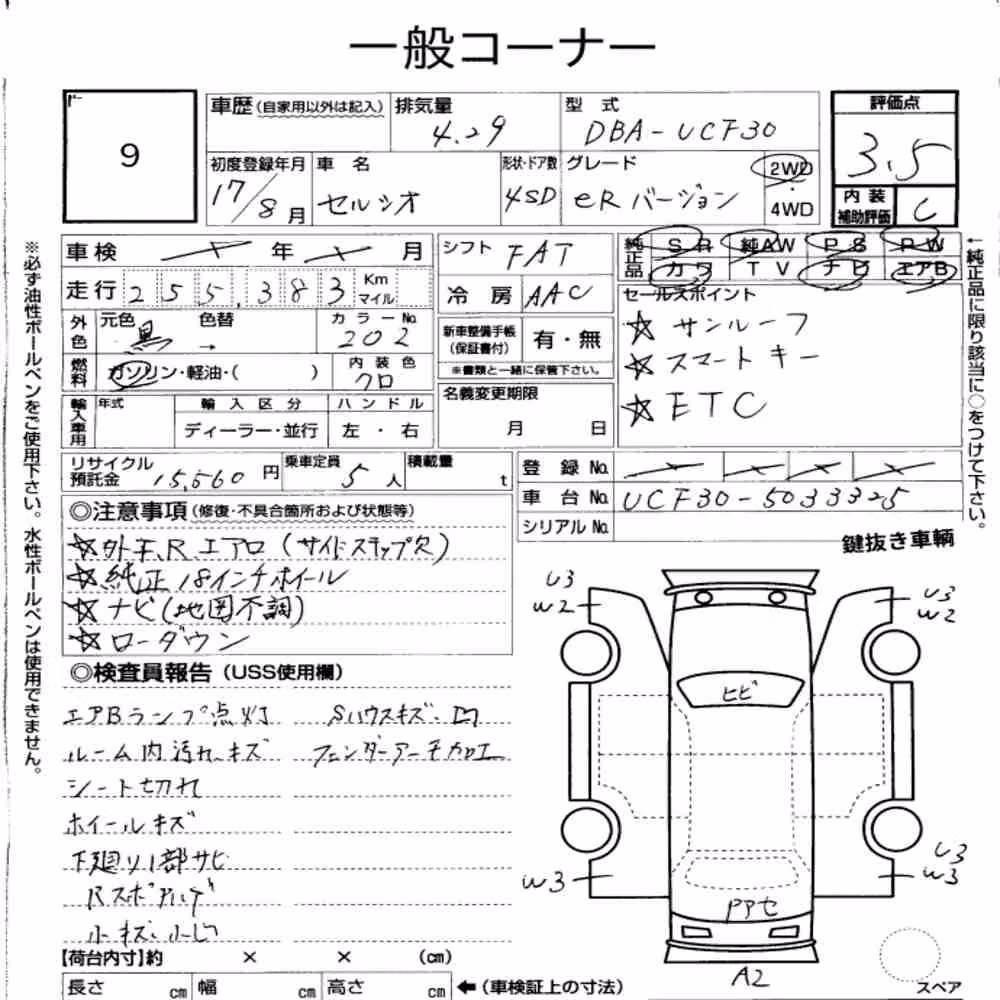 一般コーナー
9
車歴 (自家用以外は記入)
排気量
4.29
型 式
DBA-UCF30
評価点
3.5
初度登録年月
17/8月
車 名
セルシオ
形状・ドア数
4SD
グレード
eR バージョン
2WD
・
4WD
内装補助評価
C
車検 年 月
走行 255,383 Km マイル
外色
元色 黒
色替 →
カラーNo.
202
燃料
ガソリン・軽油・( )
内装色
クロ
輸入車用
年式
輸入区分
ディーラー・並行
ハンドル
左・右
シフト
FAT
冷房
AAC
新車整備手帳
(保証書付)
有・無
※書類と一緒に保管下さい。
名義変更期限
月 日
純正品
SR 純AW PS PW
カワ TV ナビ エアB
セールスポイント
☆ サンルーフ
☆ スマートキー
☆ ETC
リサイクル預託金
15,560円
乗車定員
5人
積載量
t
登録No.
車台No. UCF30-5033325
シリアルNo.
鍵抜き車輌
◎注意事項 (修復・不具合箇所および状態等)
☆外F.R.エアロ(サイドステップ欠)
☆純正18インチホイール
☆ナビ(地図不調)
☆ローダウン
◎検査員報告 (USS使用欄)
エアBランプ点灯
ルーム内汚れ、キズ
シート切れ
ホイールキズ
下廻り1部サビ
小キズ、小凹
Sハウスキズ、凹
フェンダーアーチ加工
U3
W2
U3
W2
ヒビ
W3
U3
W3
A2
スペア
【荷台内寸】約 × × (cm)
長さ cm
幅 cm
高さ cm
←(車検証上の寸法)
※必ず油性ボールペンをご使用下さい。水性ボールペンは使用できません。
←純正品に限り該当に○をつけて下さい。